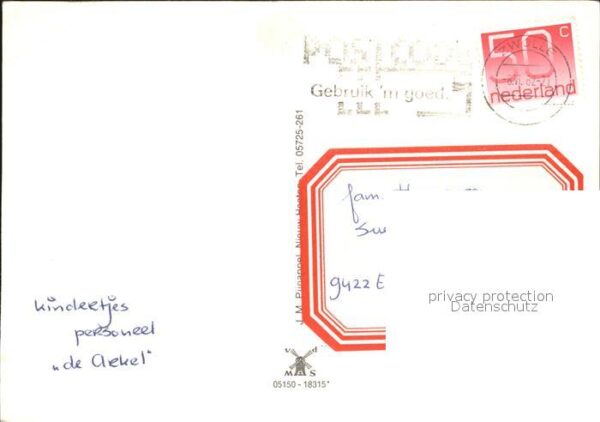 POSTCODE
Gebruik 'm goed.
ZWOLLE
50 C
nederland
J. M. Pijnappel, Nieuw Heeten, Tel. 05725-261
fam.
9422 E
privacy protection
Datenschutz
kindertjes
personeel
"de Arkel"
v d
MAS
05150 - 18315*